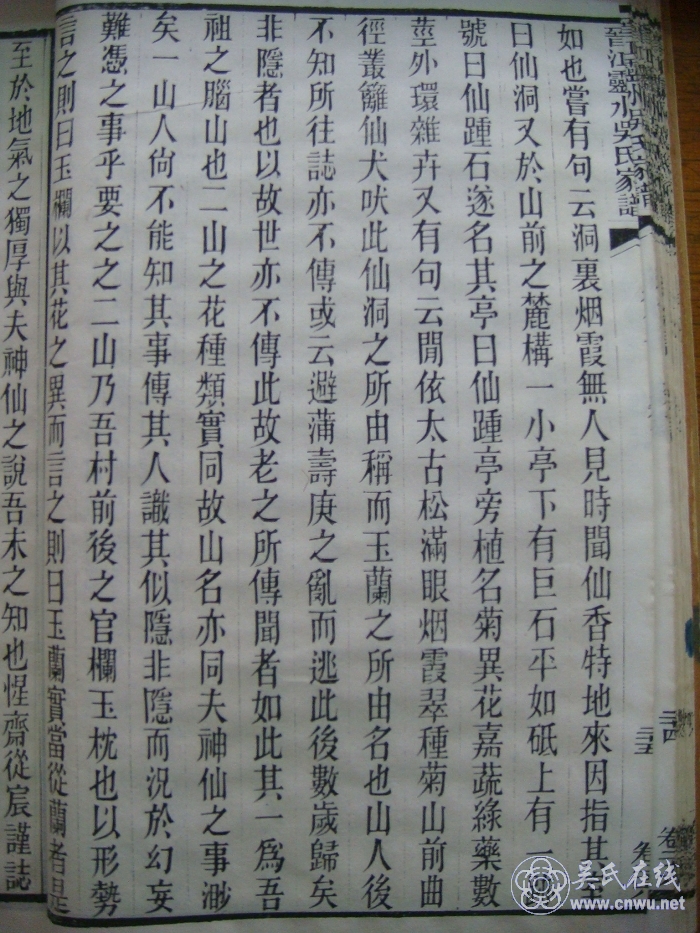 晉江靈水吳氏家譜
如也嘗有句云洞裏烟霞無人見時聞仙香特地來因指其
曰仙洞又於山前之麓構一小亭下有巨石平如砥上有一
號曰仙踵石遂名其亭曰仙踵亭旁植名菊異花嘉蔬綠藥數
莖外環雜卉又有句云閒依太古松滿眼烟霞翠種菊山前曲
徑叢籬仙犬吠此仙洞之所由稱而玉蘭之所由名也山人後
不知所往誌亦不傳或云避蒲壽庚之亂而逃此後數歲歸矣
非隱者也以故世亦不傳此故老之所傳聞者如此其一為吾
祖之腦山也二山之花種類實同故山名亦同夫神仙之事渺
矣一山人尙不能知其事傳其人識其似隱非隱而況於幻妄
難憑之事乎要之之二山乃吾村前後之官欄玉枕也以形勢
言之則曰玉欄以其花之異而言之則曰玉蘭實當從蘭者是
至於地氣之獨厚與夫神仙之說吾未之知也惺齋從宸謹誌
吴氏在线
www.cnwu.net